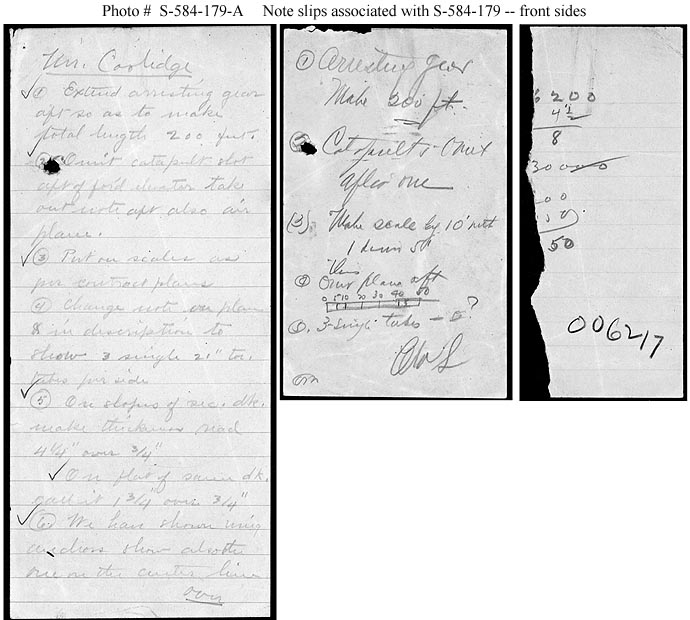 Photo # S-584-179-A Note slips associated with S-584-179 -- front sides
Mr. Coolidge
① Extend arresting gear
aft so as to make
total length 200 feet.
② Omit catapult slot
aft of ford elevator take
out note aft also air
plane.
③ Put on scales as
per contract plans
④ Change note on plan
& in description to
show 3 single 21" tor.
tubes per side
⑤ On slopes of sec. dk.
make thickness read
4 1/4" over 3/4"
On flat of same dk.
call it 1 3/4" over 3/4"
⑥ We have shown
show also the
one on the center line
over
① Arresting gear
Make 200 ft.
② Catapults Omit
after one
③ Make scale by 10' with
④ Omit plane aft
0 5 10 20 30 40 50
3-single tubes - ?
200
4 1/2
8
30000
00
50
006217